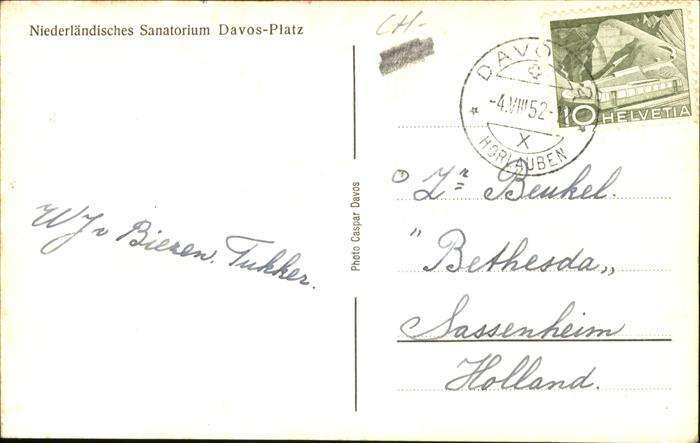 Niederländisches Sanatorium Davos-Platz
CH-
DAVOS
-4.VIII.52-
X
HORLAUBEN
10 HELVETIA
Zr Beukel.
"Bethesda„
Sassenheim
Holland.
WJv Biezen. Tukker.
Photo Caspar Davos